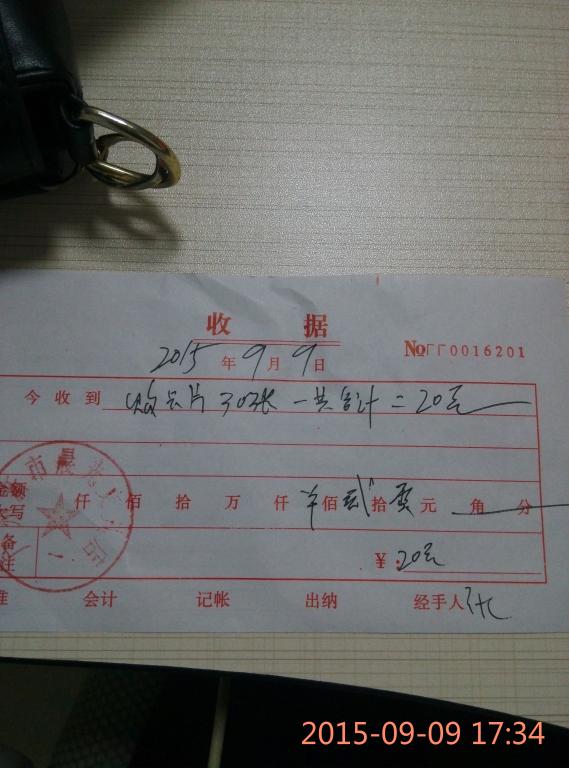 收 据
2015年9月9日 No ГГ0016201
今收到 片 30张 一共合计=20元
金额大写 仟 佰 拾 万 仟 佰 贰拾 零元 角 分
备注 ¥:20元
准 会计 记帐 出纳 经手人
市晨光
2015-09-09 17:34